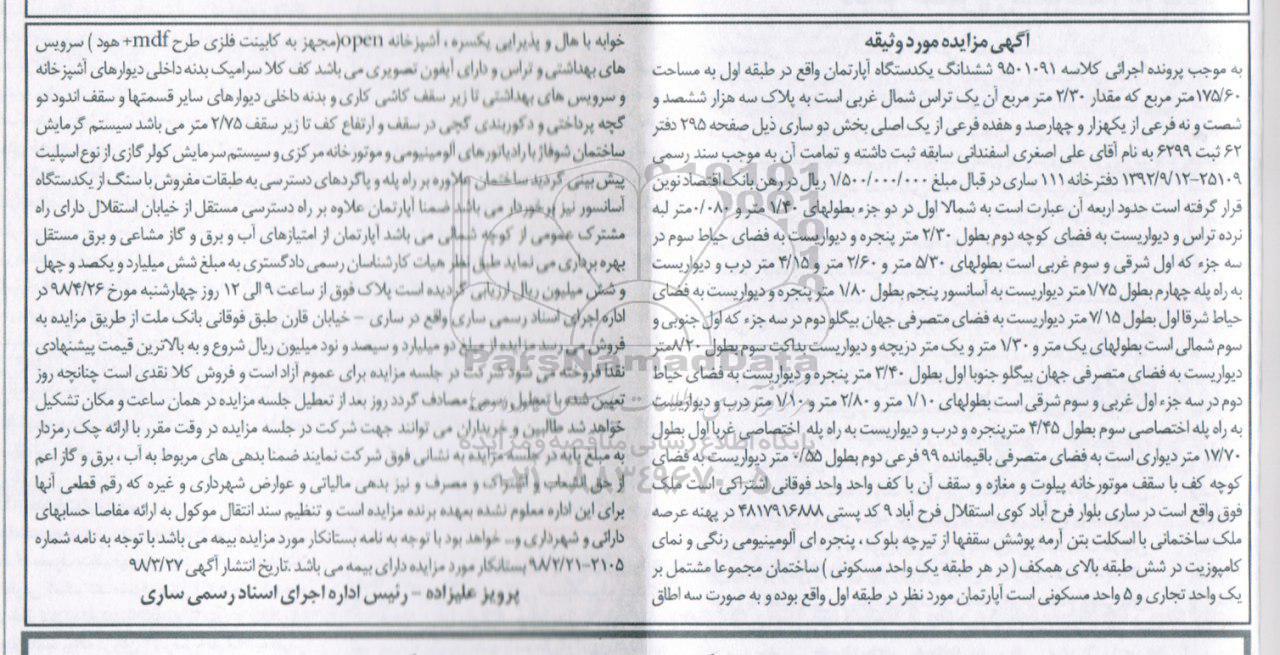 آگهی مزایده مورد وثیقه
به موجب پرونده اجرائی کلاسه ۹۵۰۱۰۹۱ ششدانگ یکدستگاه آپارتمان واقع در طبقه اول به مساحت
۱۷۵/۶۰متر مربع که مقدار ۲/۳۰ متر مربع آن یک تراس شمال غربی است به پلاک سه هزار ششصد و
شصت و نه فرعی از یکهزار و چهارصد و هفده فرعی از یک اصلی بخش دو ساری ذیل صفحه ۲۹۵ دفتر
۶۲ ثبت ۶۲۹۹ به نام آقای علی اصغری اسفندانی سابقه ثبت داشته و تمامت آن به موجب سند رسمی
۲۵۱۰۹-۱۳۹۲/۹/۱۲ دفترخانه ۱۱۱ ساری در قبال مبلغ ۱/۵۰۰/۰۰۰/۰۰۰ ریال در رهن بانک اقتصاد نوین
قرار گرفته است حدود اربعه آن عبارت است به شمالا اول در دو جزء بطولهای ۱/۴۰ متر و ۰/۰۸۰متر لبه
نرده تراس و دیواریست به فضای کوچه دوم بطول ۲/۳۰ متر پنجره و دیواریست به فضای حیاط سوم در
سه جزء که اول شرقی و سوم غربی است بطولهای ۵/۳۰ متر و ۲/۶۰ متر و ۴/۱۵ متر درب و دیواریست
به راه پله چهارم بطول ۱/۷۵متر دیواریست به آسانسور پنجم بطول ۱/۸۰ متر پنجره و دیواریست به فضای
حیاط شرقا اول بطول ۷/۱۵متر دیواریست به فضای متصرفی جهان بیگلو دوم در سه جزء که اول جنوبی و
سوم شمالی است بطولهای یک متر و ۱/۳۰ متر و یک متر دریچه و دیواریست بداکت سوم بطول ۸/۲۰متر
دیواریست به فضای متصرفی جهان بیگلو جنوبا اول بطول ۳/۴۰ متر پنجره و دیواریست به فضای حیاط
دوم در سه جزء اول غربی و سوم شرقی است بطولهای ۱/۱۰ متر و ۲/۸۰ متر و ۱/۱۰ متر درب و دیواریست
به راه پله اختصاصی سوم بطول ۴/۴۵ مترپنجره و درب و دیواریست به راه پله اختصاصی غربا اول بطول
۱۷/۷۰ متر دیواری است به فضای متصرفی باقیمانده ۹۹ فرعی دوم بطول ۰/۵۵ متر دیواریست به فضای
کوچه کف با سقف موتورخانه پیلوت و مغازه و سقف آن با کف واحد واحد فوقانی اشتراکی است ملک
فوق واقع است در ساری بلوار فرح آباد کوی استقلال فرح آباد ۹ کد پستی ۴۸۱۷۹۱۶۸۸۸ در پهنه عرصه
ملک ساختمانی با اسکلت بتن آرمه پوشش سقفها از تیرچه بلوک ، پنجره ای آلومینیومی رنگی و نمای
کامپوزیت در شش طبقه بالای همکف ( در هر طبقه یک واحد مسکونی ) ساختمان مجموعا مشتمل بر
یک واحد تجاری و ۵ واحد مسکونی است آپارتمان مورد نظر در طبقه اول واقع بوده و به صورت سه اطاق
خوابه با هال و پذیرایی یکسره ، آشپزخانه open(مجهز به کابینت فلزی طرح mdf+ هود ) سرویس
های بهداشتی و تراس و دارای آیفون تصویری می باشد کف کلا سرامیک بدنه داخلی دیوارهای آشپزخانه
و سرویس های بهداشتی تا زیر سقف کاشی کاری و بدنه داخلی دیوارهای سایر قسمتها و سقف اندود دو
گچه پرداختی و دکوربندی گچی در سقف و ارتفاع کف تا زیر سقف ۲/۷۵ متر می باشد سیستم گرمایش
ساختمان شوفاژ با رادیاتورهای آلومینیومی و موتورخانه مرکزی و سیستم سرمایش کولر گازی از نوع اسپلیت
پیش بینی گردید ساختمان علاوه بر راه پله و پاگردهای دسترسی به طبقات مفروش با سنگ از یکدستگاه
آسانسور نیز برخوردار می باشد ضمنا آپارتمان علاوه بر راه دسترسی مستقل از خیابان استقلال دارای راه
مشترک عمومی از کوچه شمالی می باشد آپارتمان از امتیازهای آب و برق و گاز مشاعی و برق مستقل
بهره برداری می نماید طبق نظر هیات کارشناسان رسمی دادگستری به مبلغ شش میلیارد و یکصد و چهل
و شش میلیون ریال ارزیابی گردیده است پلاک فوق از ساعت ۹ الی ۱۲ روز چهارشنبه مورخ ۹۸/۴/۲۶ در
اداره اجرای اسناد رسمی ساری واقع در ساری - خیابان قارن طبق فوقانی بانک ملت از طریق مزایده به
فروش می رسد مزایده از مبلغ دو میلیارد و سیصد و نود میلیون ریال شروع و به بالاترین قیمت پیشنهادی
نقدا فروخته می شود شرکت در جلسه مزایده برای عموم آزاد است و فروش کلا نقدی است چنانچه روز
تعیین شده با تعطیل رسمی مصادف گردد روز بعد از تعطیل جلسه مزایده در همان ساعت و مکان تشکیل
خواهد شد طالبین و خریداران می توانند جهت شرکت در جلسه مزایده در وقت مقرر با ارائه چک رمزدار
به مبلغ پایه در جلسه مزایده به نشانی فوق شرکت نمایند ضمنا بدهی های مربوط به آب ، برق و گاز اعم
از حق انشعاب و اشتراک و مصرف و نیز بدهی مالیاتی و عوارض شهرداری و غیره که رقم قطعی آنها
برای این اداره معلوم نشده بعهده برنده مزایده است و تنظیم سند انتقال موکول به ارائه مفاصا حسابهای
دارائی و شهرداری و... خواهد بود با توجه به نامه بستانکار مورد مزایده بیمه می باشد با توجه به نامه شماره
۲۱۰۵-۹۸/۲/۲۱ بستانکار مورد مزایده دارای بیمه می باشد .تاریخ انتشار آگهی ۹۸/۳/۲۷
پرویز علیزاده - رئیس اداره اجرای اسناد رسمی ساری
ParsNamadData
پایگاه اطلاع رسانی مناقصه و مزایده